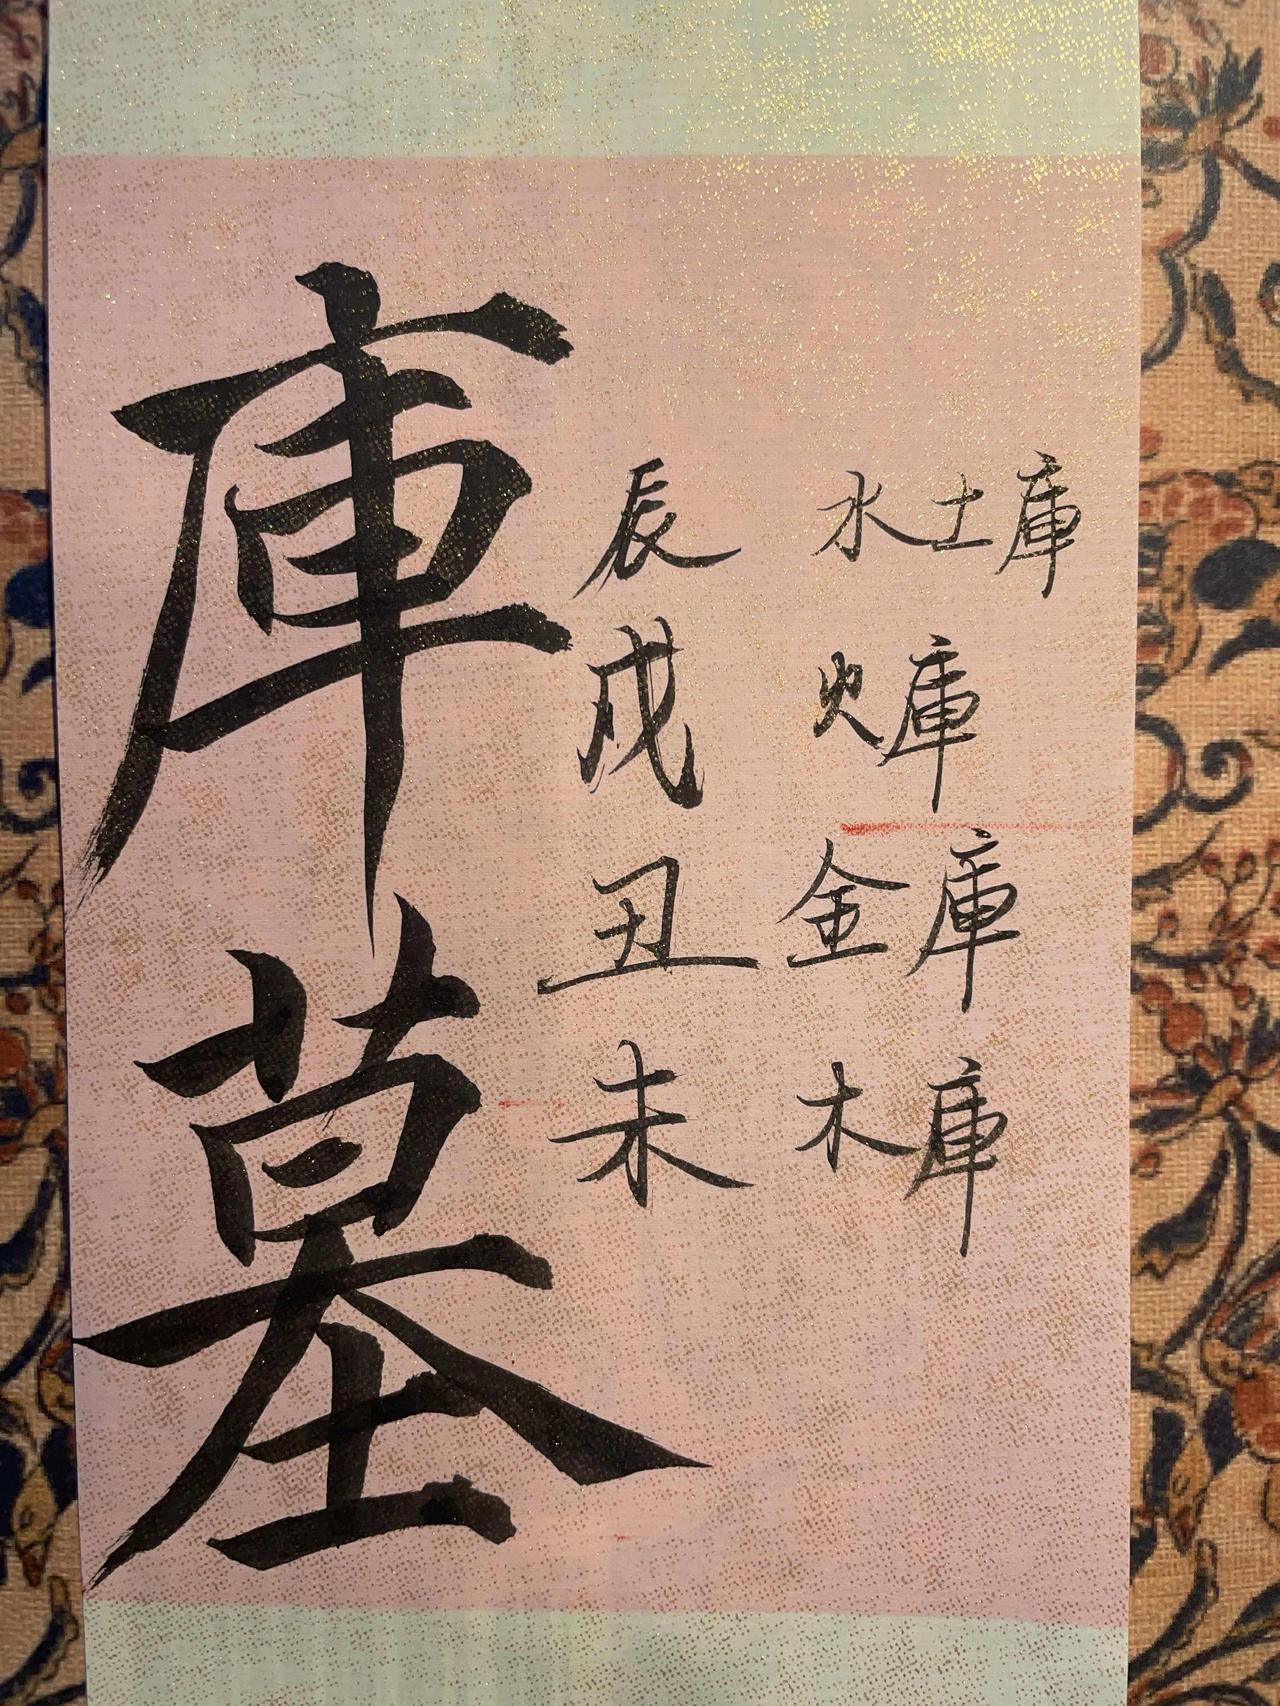 庫墓
辰 水土庫
戌 火庫
丑 金庫
未 木庫